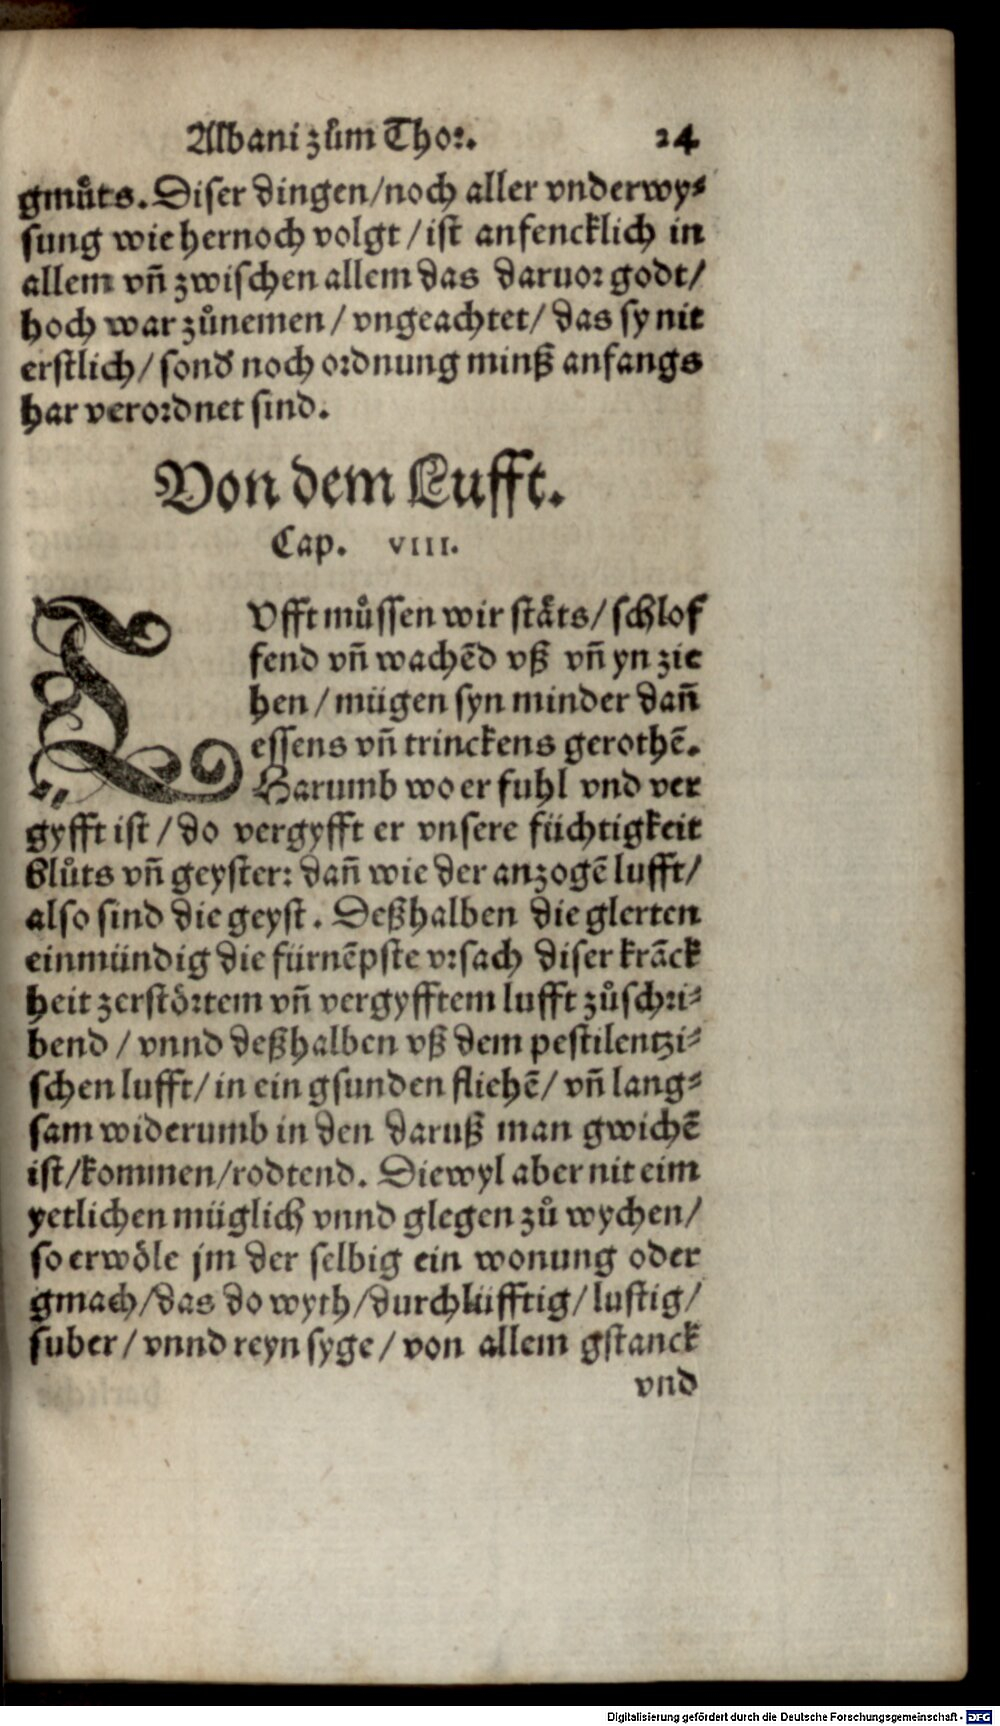 Albani zům Thor. 24
gmůts. Diser dingen/noch aller vnderwy⸗
sung wie hernoch volgt/ist anfencklich in
allem vn̄ zwischen allem das daruor godt/
hoch war zůnemen/vngeachtet/das sy nit
erstlich/sond noch ordnung minß anfangs
har verordnet sind.
Von dem Lufft.
Cap. VIII.
LVfft můssen wir stäts/schlof
fend vn̄ wachēd vß vn̄ yn zie
hen/mügen syn minder dan̄
essens vn̄ trinckens gerothē.
Harumb wo er fuhl vnd ver
gyfft ist/do vergyfft er vnsere füchtigkeit
blůts vn̄ geyster: dan̄ wie der anzogē lufft/
also sind die geyst. Deßhalben die glerten
einmündig die fürnēpste vrsach diser krāck
heit zerstörtem vn̄ vergyfftem lufft zůschri⸗
bend/vnnd deßhalben vß dem pestilentzi⸗
schen lufft/in ein gsunden fliehē/vn̄ lang⸗
sam widerumb in den daruß man gwichē
ist/kommen/rodtend. Diewyl aber nit eim
yetlichen müglich vnnd glegen zů wychen/
so erwöle jm der selbig ein wonung oder
gmach/das do wyth/durchlüfftig/lustig/
suber/vnnd reyn syge/von allem gstanck
vnd
Digitalisierung gefördert durch die Deutsche Forschungsgemeinschaft - DFG